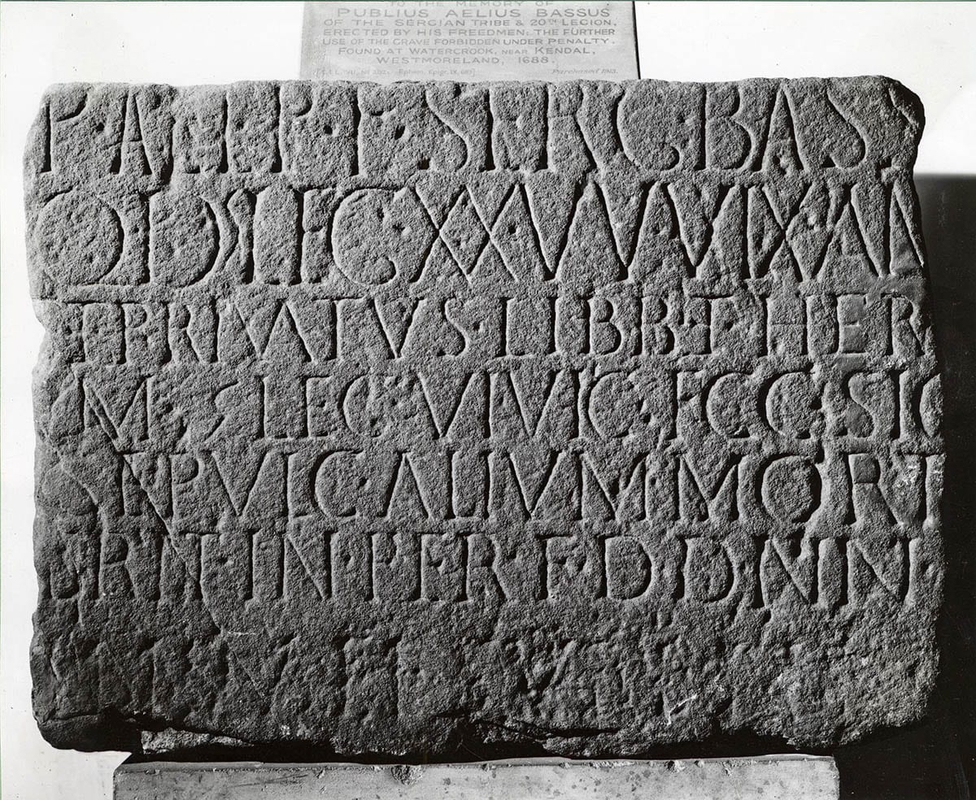 TO THE MEMORY OF
PUBLIUS AELIUS BASSUS
OF THE SERGIAN TRIBE & 20TH LEGION.
ERECTED BY HIS FREEDMEN. THE FURTHER
USE OF THE GRAVE FORBIDDEN UNDER PENALTY.
FOUND AT WATERCROOK, NEAR KENDAL,
WESTMORELAND, 1688.
P·AEL·P·F·SERG·BASS
Q D LEG XX VV VIX AN
ET PRIVATVS LIBB ET HER
M LEG VI VIC FC C SIC
SEPVLC ALIVM MORT
ERIT IN F D D NN